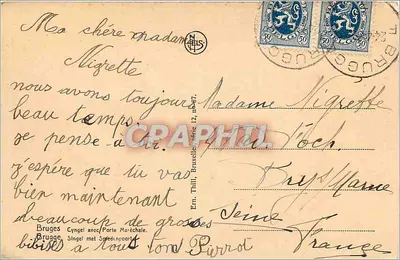 Ma chère madame
Nigrette
nous avons toujours
beau temps.
je pense a toi.
j'espère que tu vas
bien maintenant
beaucoup de grosses
bibises a tous ton Pierrot
Madame Nigrette
Bry s/ Marne
Seine
France
BRUGG
50 50
Bruges Cyngel avec Porte Maréchale.
Brugge Singel met Smedenpoort.
Ern. Thill, Bruxelles, Série 12, no 47.
NELS
CPARAMA